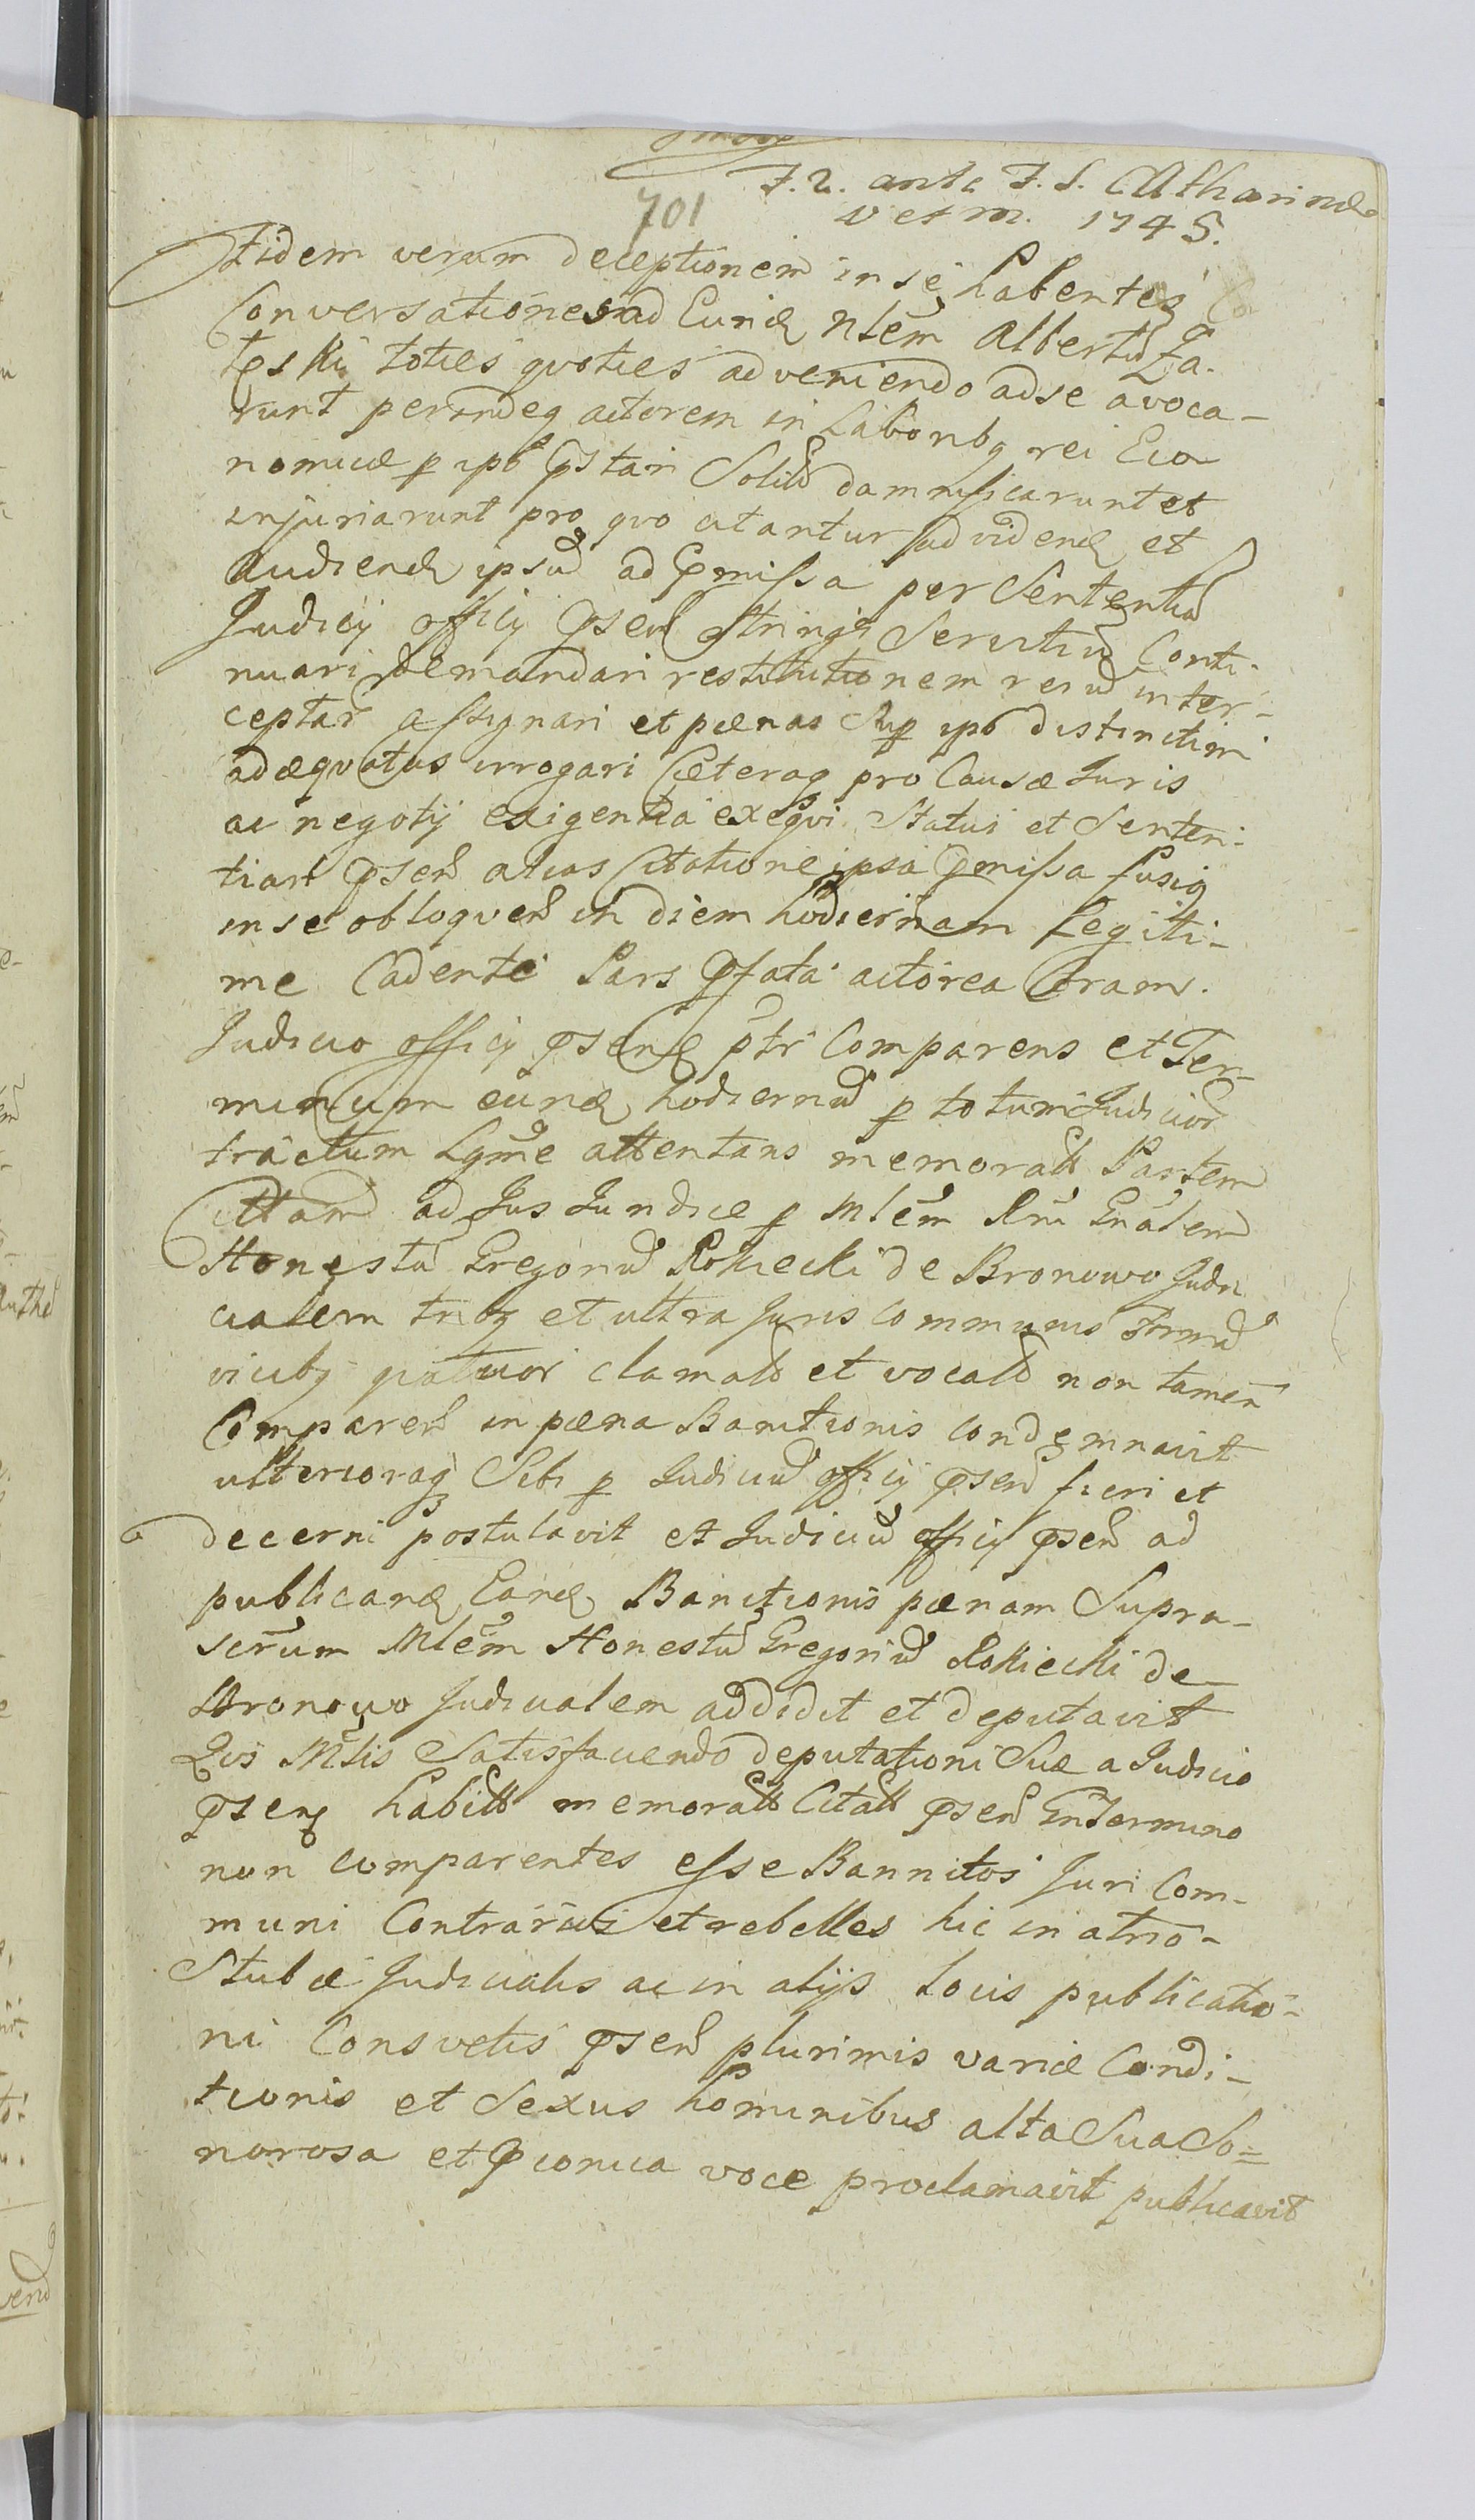 F. 2. ante F. S. Catharinæ
701
V et M. 1745.
Fidem verum deceptionem in se habentes
Conversationes ad Eund Nlem Albertũ Za-
teski toties qvoties adveniendo ad se avoca-
runt perindeq actorem in Laboribq rei Eco
nomicæ p ipõ pstari Solitũ damnificarunt et
injuriarunt pro qvo citantur ad vidend et
Audiend ipsũ ad pmissa per Sententiã
Judicij officij psent stringi Servitiũ Conti-
nuari demandari restitutionem reiũ inter-
ceptar assignari et pænas Sup ipõ distinctim
adæqvatas irrogari Cæteraq pro Causæ Juris
ac negotij exigentia exeqvi Statui et Senten-
tiari psen alias Citatione ipsa pmissa fusiq
in se obloqven in diem hodiernam Legiti-
me Cadente Pars pfata actorea Coram
Judicio officij psenq ptr Comparens et Ter-
minum eund hodiernũ p totum Judicior
tractum Lgme attentans memoratt Partem
Cittam ad Jus Jundice p Mlem Rni Gnalem
Honestũ Gregoriũ Rokiecki de Bronowo Judi
cialem tribq et ultra Juris communis Formã
vicibq qiatuor clamatõ et vocatõ non tamen
Comparen in pæna Banitionis condemnavit
ulterioraq Sibi p Judiciũ officij psen fieri et
decerni postulavit et Judiciũ officij psen ad
publicand Eand Banitionis pænam Supra-
scrum Mlem Honestũ Gregoriũ Rokiecki de
Bronowo Judicialem addidit et deputavit
Qvi Mlis Satisfaciendo deputationi Suæ a Judicio
psenq habitæ memoratt Citatt psen in Termino
non comparentes esse Bannitos Juri Com-
muni Contrarios et rebelles hic in atrio
Stubæ Judicialis ac in alijs Locis publicatio-
ni Consvetis psen plurimis variæ Condi-
tionis et Sexus hominibus alta Sua So=
norosa et pconica voce proclamavit publicavit